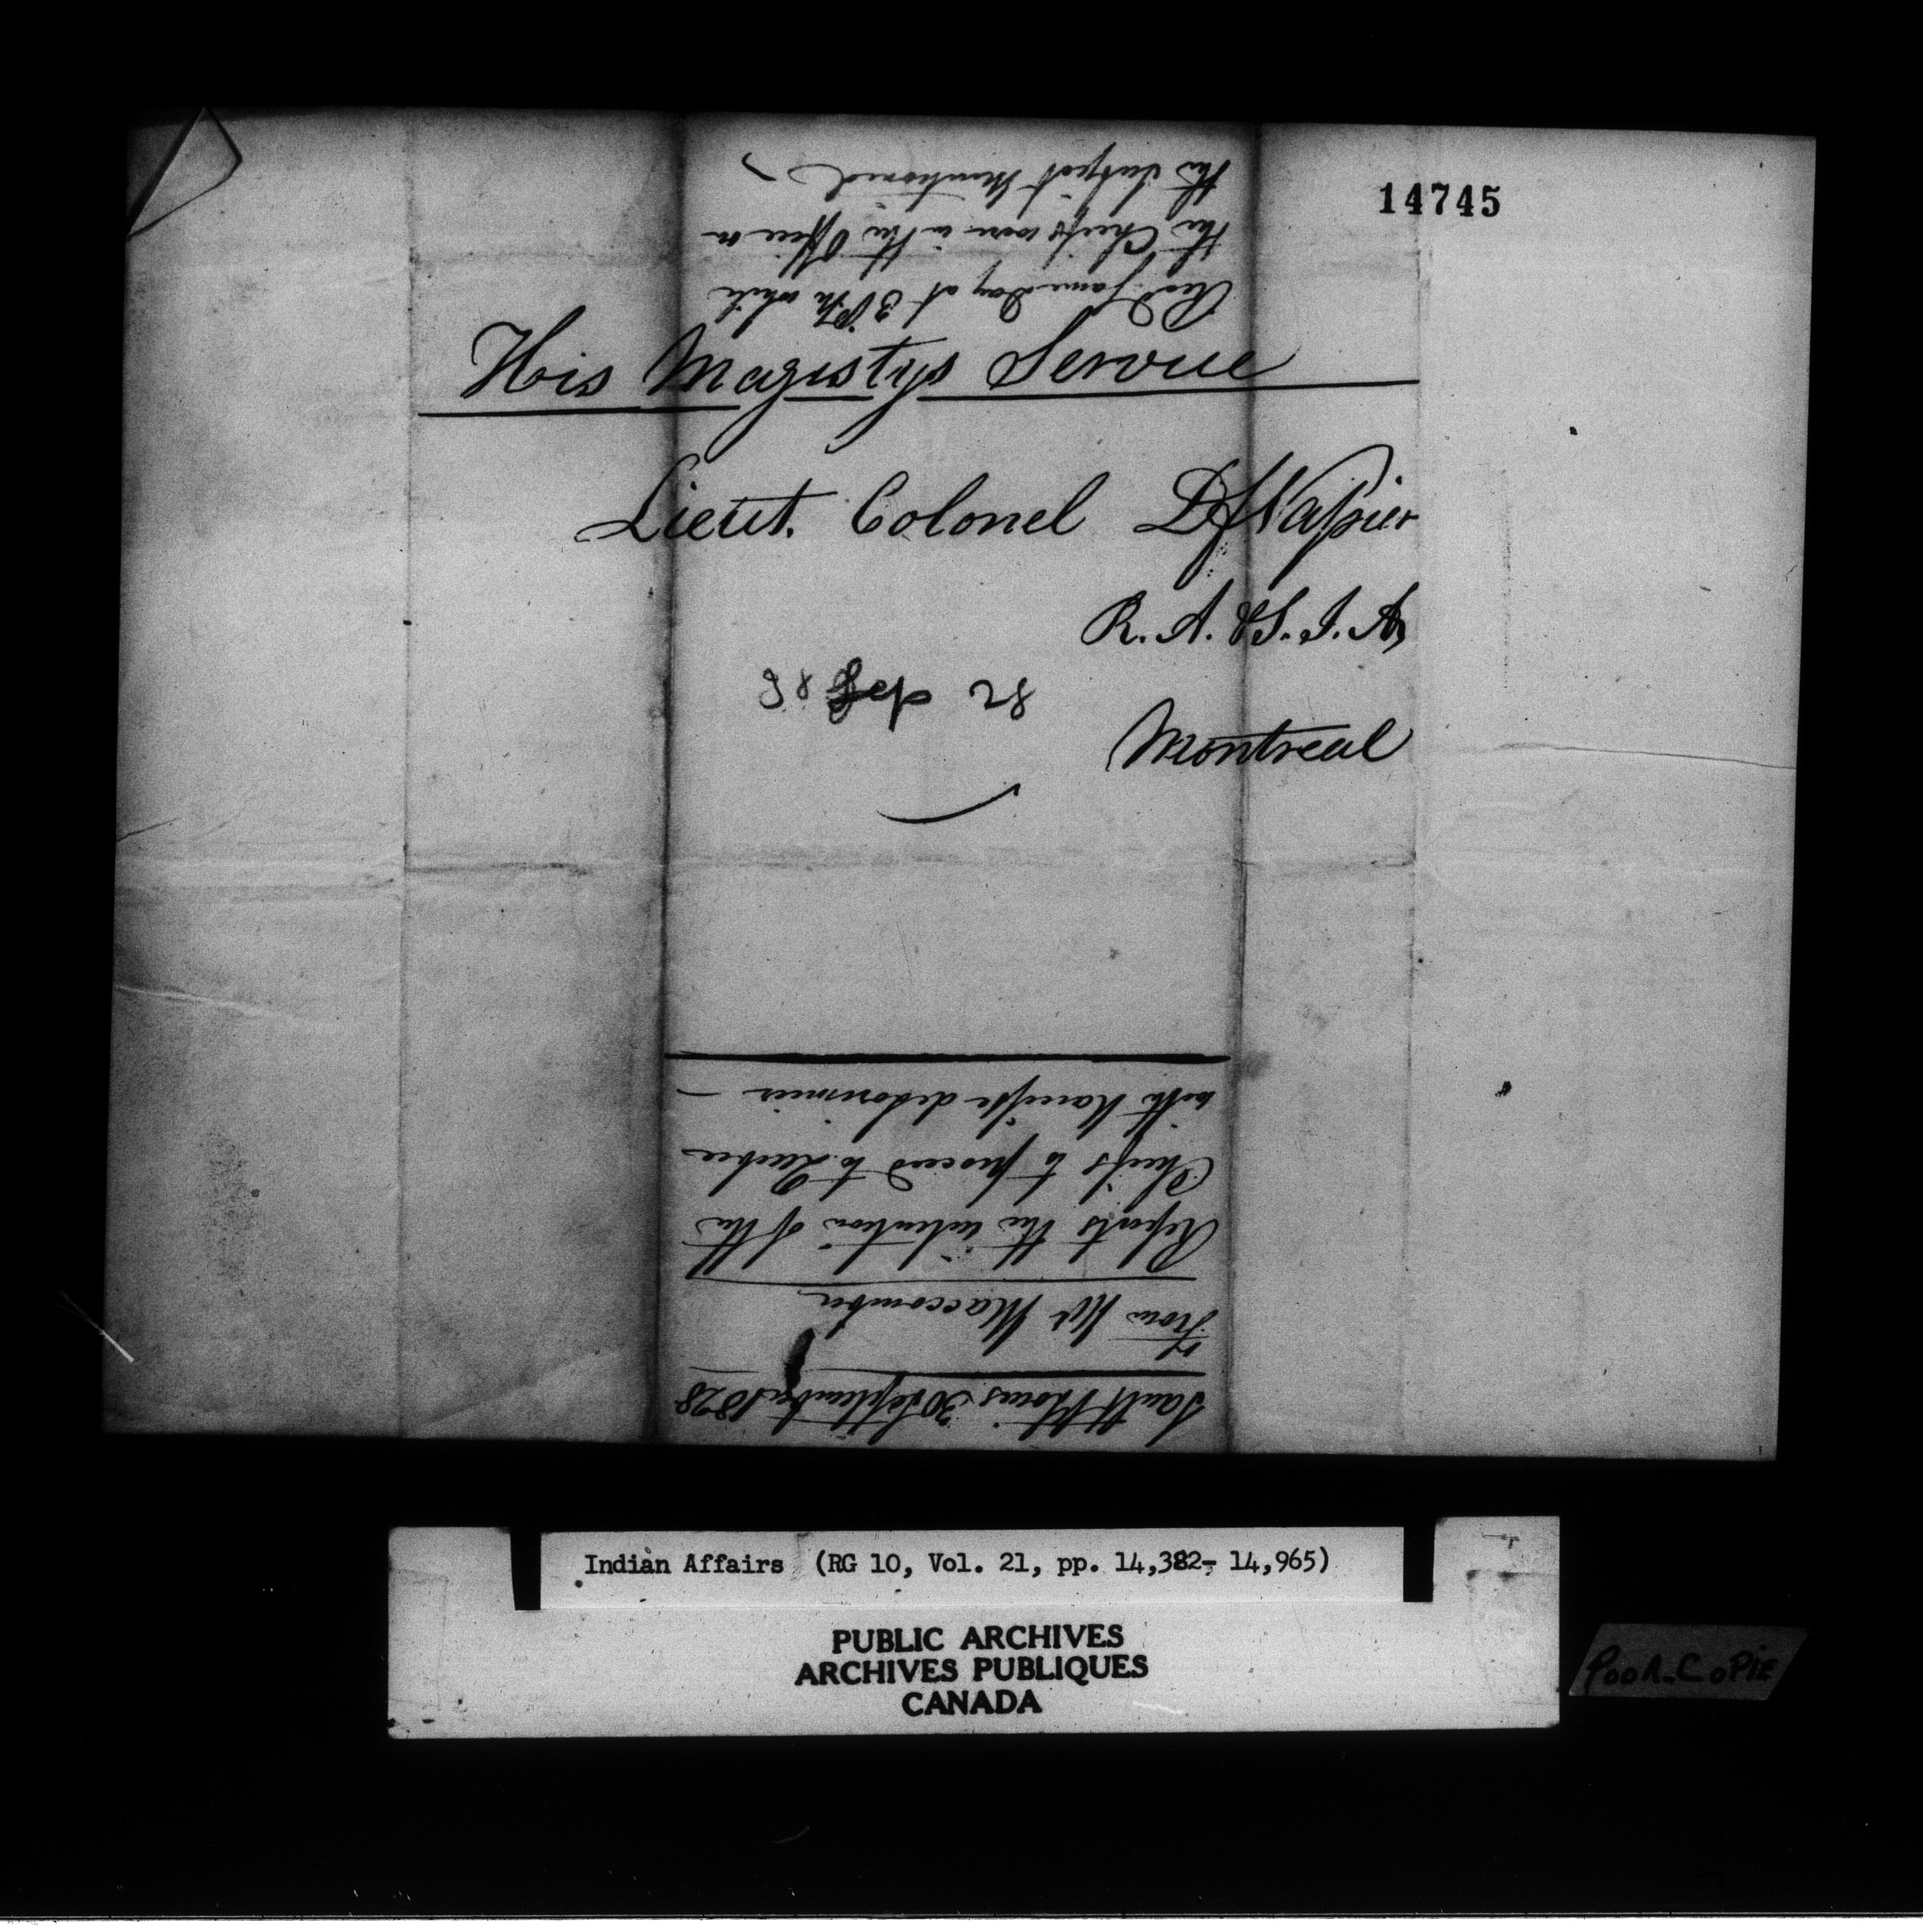 14745
His Magistys Service
Lieut. Colonel D Napier
R. A. & S. I. A
Montreal
Sep 28
Sault St Louis 30 September 1828
From Mr Maccomber
Reports the intention of the
Chiefs to proceed to Quebec
with Narcisse delorimier
Recd same day at 3 PM while
the Chiefs were in the Office on
the Subject Mentioned
Indian Affairs (RG 10, Vol. 21, pp. 14,382- 14,965)
PUBLIC ARCHIVES
ARCHIVES PUBLIQUES
CANADA
POOR-COPIE